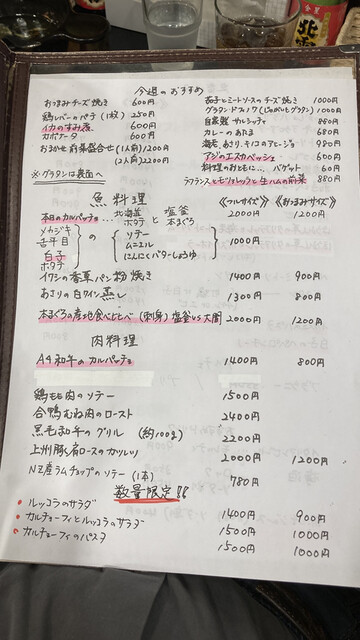 今週のおすすめ
おつまみチーズ焼き 600円
鶏レバーのパテ(1枚) 250円
イカのすみ煮 600円
カポナータ 600円
おまかせ前菜盛合せ(1人前) 1200円
(2人前) 2200円
※グラタンは裏面へ
茄子とミートソースのチーズ焼き 1000円
グラタン・ドフィノワ(じゃがいもグラタン) 1000円
自家製サルシッチャ 850円
カレーのあたま 680円
海老、あさり、キノコのアヒージョ 980円
アジのエスカベッシュ 600円
料理のおともに... バゲット 60円
ラフランスとモッツァレッラと生ハムの前菜 880円
魚料理
《フルサイズ》《おつまみサイズ》
本日のカルパッチョ… 北海道ホタテと塩釜本まぐろ 2000円 1200円
メカジキ
舌平目
白子
ホタテ
の
ソテー
ムニエル
にんにくバターしょうゆ
1000円
イワシの香草パン粉焼き 1400円 900円
あさりの白ワイン蒸し 1300円 800円
本まぐろの産地食べ比べ(刺身)塩釜vs大間 2000円 1200円
肉料理
A4和牛のカルパッチョ 1400円 800円
鶏もも肉のソテー 1500円
合鴨むね肉のロースト 2400円
黒毛和牛のグリル (約100g) 2200円
上州豚肩ロースのカツレツ 2000円 1200円
NZ産ラムチョップのソテー(1本) 780円
数量限定!!
ルッコラのサラダ 1400円 900円
カルチョーフィとルッコラのサラダ 1500円 1000円
カルチョーフィのパスタ 1500円 1000円